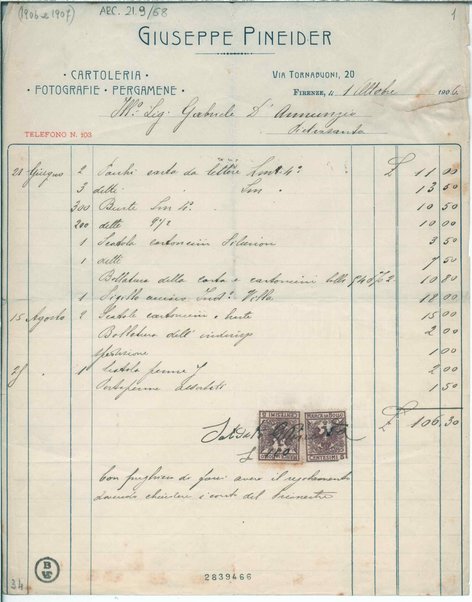 (1906 e 1907)
ARC. 21.9/68
1
GIUSEPPE PINEIDER
· CARTOLERIA ·
· FOTOGRAFIE · PERGAMENE ·
VIA TORNABUONI, 20
FIRENZE, li 1 Ottobre 1906
Ill.o Sig. Gabriele D'Annunzio
Pietrasanta
TELEFONO N. 103
21 Giugno 2 Pacchi carta da lettere 4° £ 11 00
3 detti 13 50
300 Buste 4° 10 50
200 dette 10 00
1 Scatola cartoncini 3 50
1 dette 7 50
Bollatura della carta e cartoncini 10 80
1 Sigillo 18 00
15 Agosto 2 Scatole cartoncini e buste 15 00
Bollatura dell' indirizzo 2 00
spedizione 1 00
25 " 1 Scatola penne 2 00
Portapenne 1 50
£ 106.30
MARCA DA BOLLO
CENTESIMI 5
CENTESIMI 5
Con preghiera di farci avere il regolamento
dovendo chiudere i conti del trimestre
2839466
34